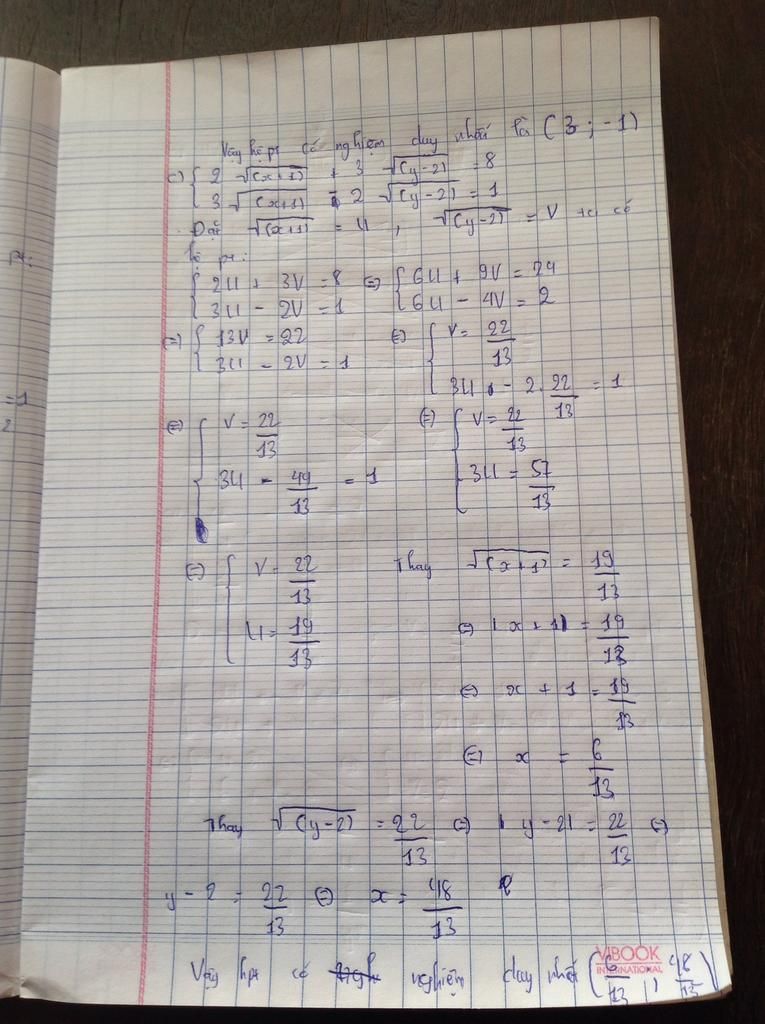 Vậy hệ pt có nghiệm duy nhất là (3 ; -1)
c) { 2 √(x+1) + 3 √(y-2) = 8
3 √(x+1) - 2 √(y-2) = 1
Đặt √(x+1) = U , √(y-2) = V ta có
hệ pt:
{ 2U + 3V = 8 (=) { 6U + 9V = 24
3U - 2V = 1 6U - 4V = 2
(=) { 13V = 22 (=) { V = 22/13
3U - 2V = 1 3U - 2. 22/13 = 1
(=) { V = 22/13 (=) { V = 22/13
3U - 44/13 = 1 3U = 57/13
(=) { V = 22/13 Thay √(x+1) = 19/13
U = 19/13 (=) |x+1| = 19/13
(=) x + 1 = 19/13
(=) x = 6/13
Thay √(y-2) = 22/13 (=) |y-2| = 22/13 (=)
y - 2 = 22/13 (=) x = 48/13
Vậy hpt có nghiệm duy nhất (6/13 ; 48/13)
VIBOOK
INTERNATIONAL
= 1
2